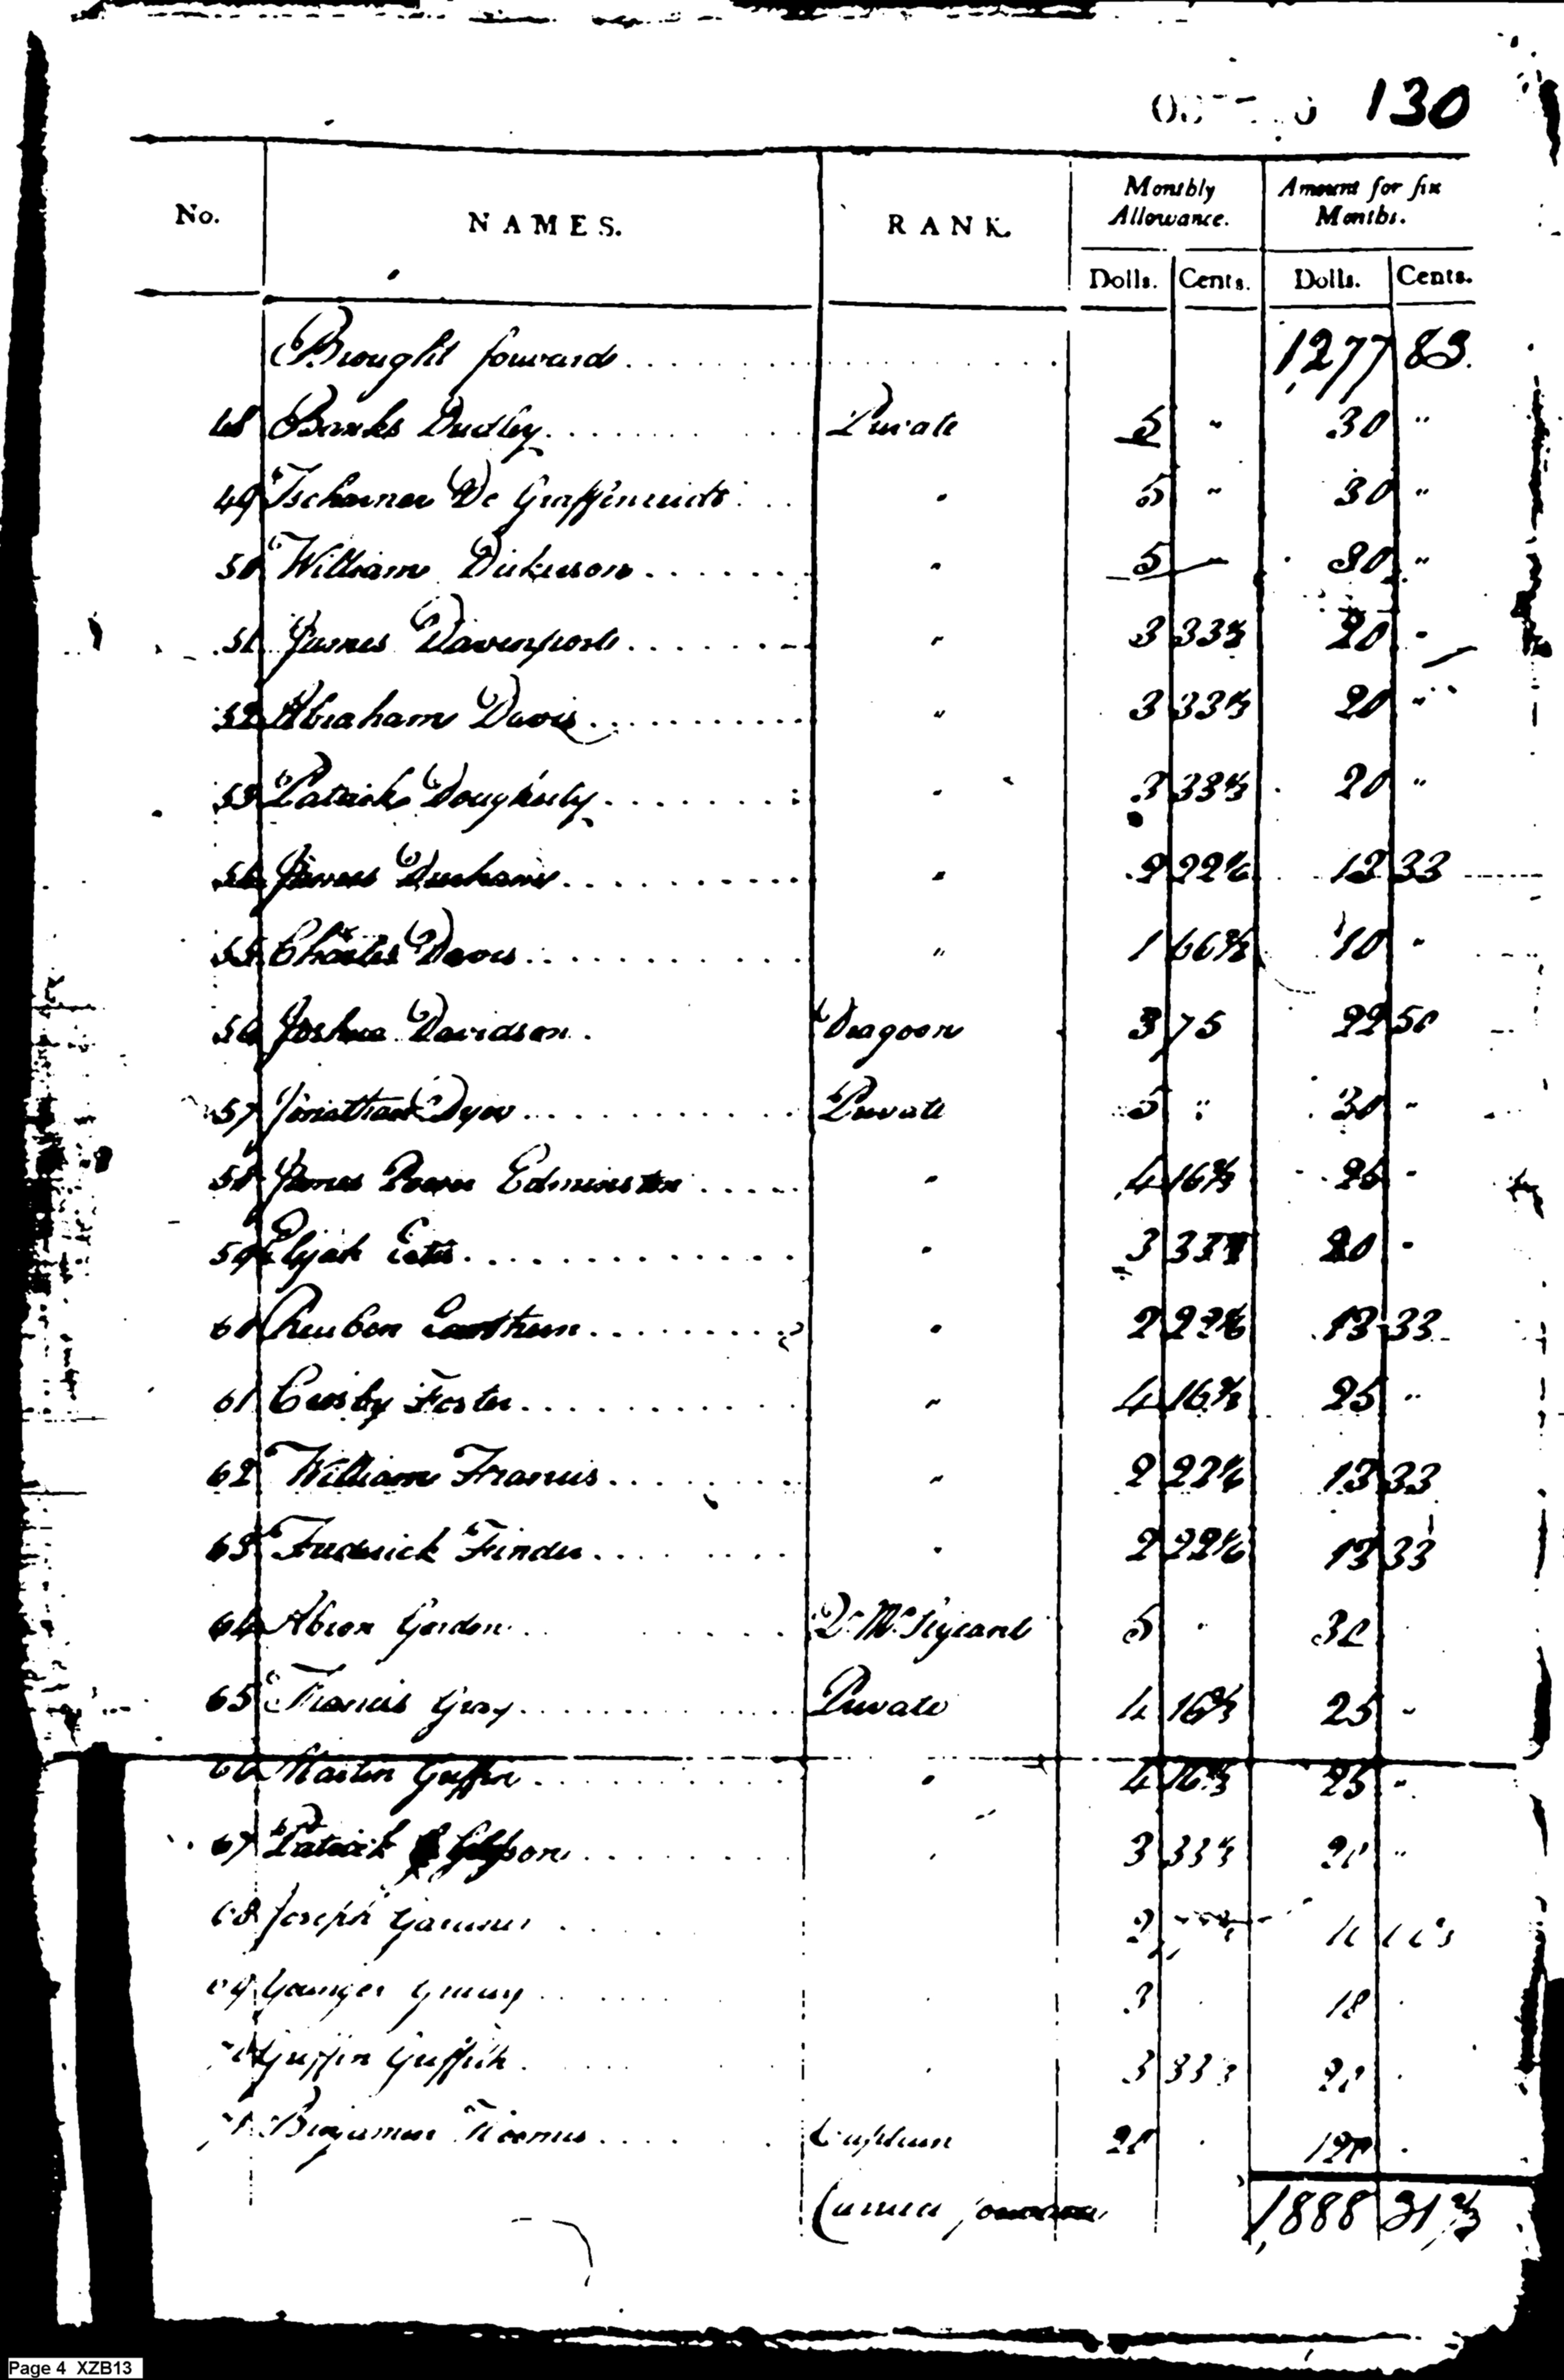 130
No. NAMES. RANK. Monthly Allowance. Amount for six Months.
Dolls. Cents. Dolls. Cents.
Brought forwards 1,277 83
48 Banks Dudley Private 5 " 30 "
49 Tscharner De Graffenreidt " 5 " 30 "
50 William Dickerson " 5 30 "
51 James Davenport " 3 33⅓ 20 "
52 Abraham Davis " 3 33⅓ 20 "
53 Patrick Dougherty " 3 33⅓ 20 "
54 James Durham " 2 22⅙ 13 33
55 Charles Davis " 1 66⅔ 10 "
56 Joshua Davidson Dragoon 3 75 22 50
57 Jonathan Dyer Private 5 " 30 "
58 James Powers Edmiston " 4 16⅔ 25 "
59 Elijah Estis " 3 33⅓ 20 "
60 Reuben Earthen " 2 22⅙ 13 33
61 Cosby Foster " 4 16⅔ 25 "
62 William Francis " 2 22⅙ 13 33
63 Frederick Finder " 2 22⅙ 13 33
64 Gordon Q. M. Sejeant 5 " 30
65 Francis Gray Private 4 16⅔ 25 "
66 Martin Griffin " 4 16⅔ 25 "
67 Patrick Gibson " 3 33⅓ 20 "
68 Joseph 2
69 3 18
70 Griffin Griffith 3 33⅓ 20
71 Benjamin Captain 20 120
Carried forwards 1,888 31⅔
Page 4 XZB13